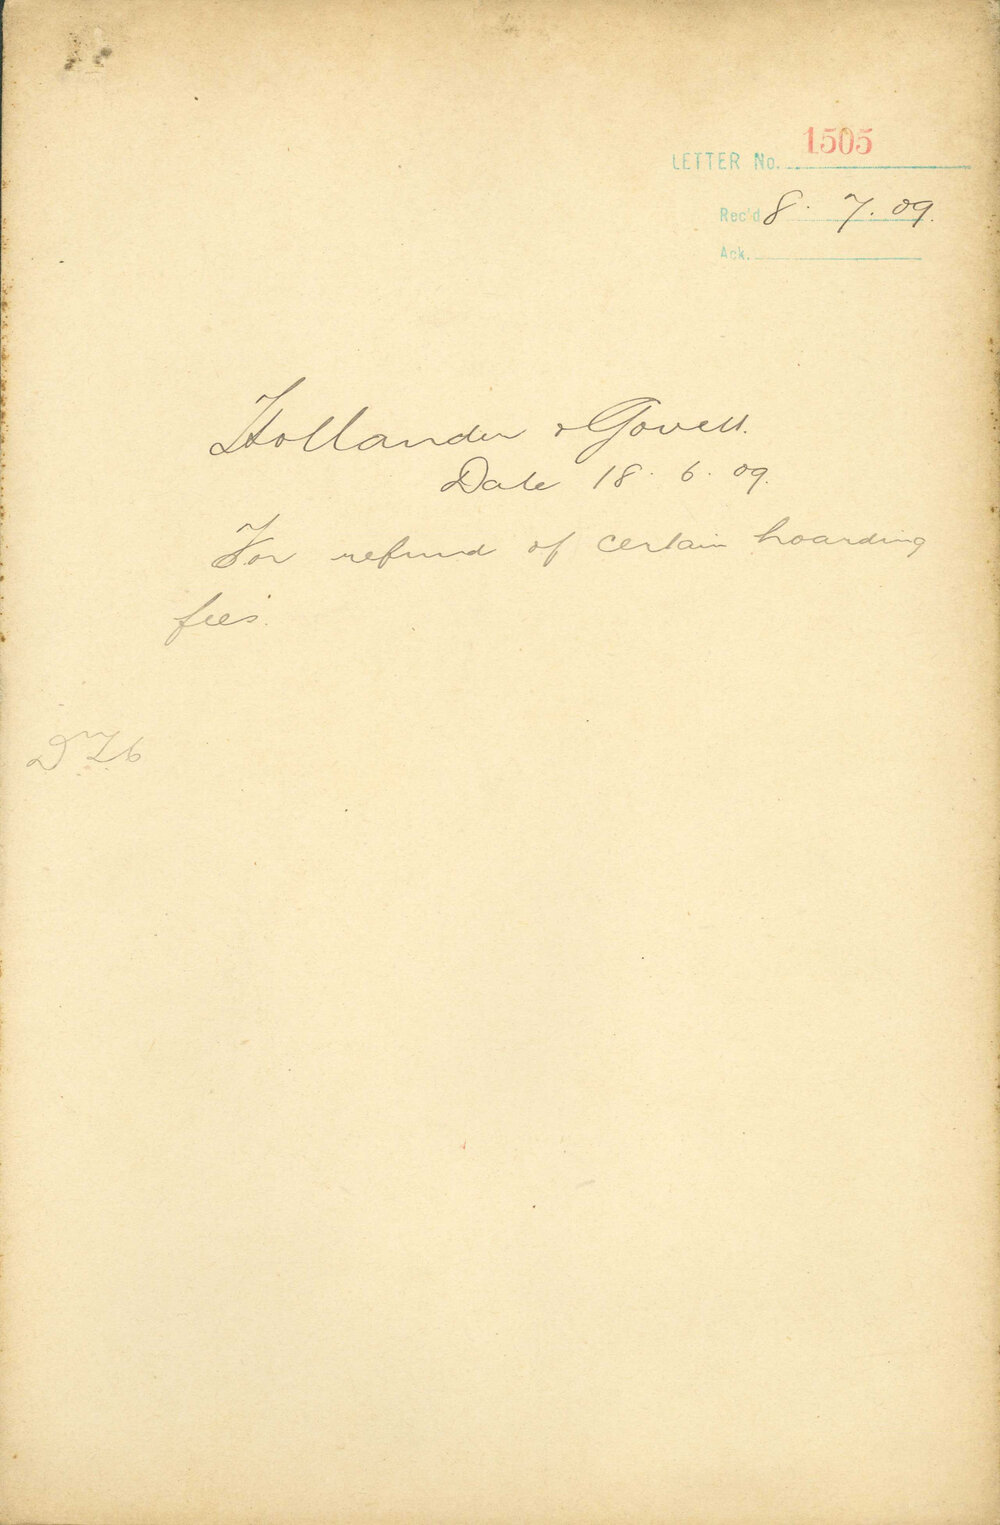 LETTER No. 1505
Rec'd 8. 7. 09.
Ack.
Hollander & Govett.
Date 18. 6. 09.
For refund of certain hoarding
fees.